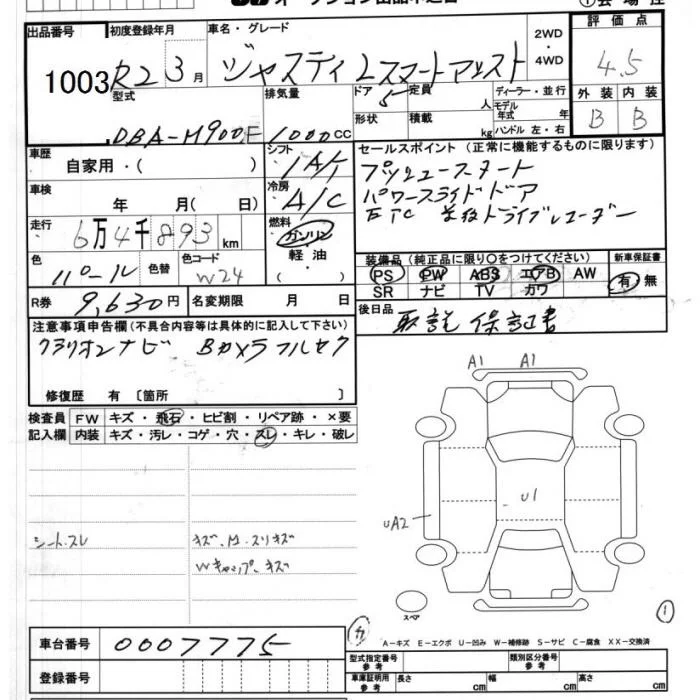 出品番号 初度登録年月 車名・グレード 2WD・4WD 評価点
1003 R2 3月 ジャスティ Lスマートアシスト 4.5
型式 排気量 ドア 5 定員 人 ディーラー・並行 外装 内装
DBA-M900F 1000cc 形状 積載 kg モデル年式 年 ハンドル 左・右 B B
車歴 自家用・( ) シフト 1A/T セールスポイント(正常に機能するものに限ります)
車検 年 月( 日) 冷房 A/C プッシュスタート
パワースライドドア
ETC 前後ドライブレコーダー
走行 6万4千893km 燃料 ガソリン 軽油 ・( )
装備品(純正品に限り○をつけてください) 新車保証書
色 パール 色替 色コード W24
PS PW ABS エアB AW 有・無
SR ナビ TV カワ
R券 9,630円 名変期限 月 日
後日品 取説 保証書
注意事項申告欄(不具合内容等は具体的に記入して下さい)
クラリオンナビ Bカメラ フルセグ
修復歴 有〔箇所 〕
検査員記入欄 FW キズ・飛石・ヒビ割・リペア跡・×要
内装 キズ・汚レ・コゲ・穴・スレ・キレ・破レ
A1 A1
U1
UA2
シートスレ キズ、M.スリキズ
Wキャップ.キズ
スペア
①
車台番号 0007775
A-キズ E-エクボ U-凹み W-補修跡 S-サビ C-腐食 XX-交換済
登録番号
型式指定番号参考 類別区分番号参考
車庫証明用参考 長さ cm 幅 cm 高さ cm